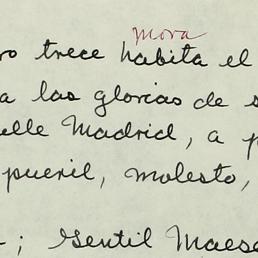 mora
ro trece habita el
a las glorias de s
elle Madrid, a p
pueril, molesto,
; Gentil Maese